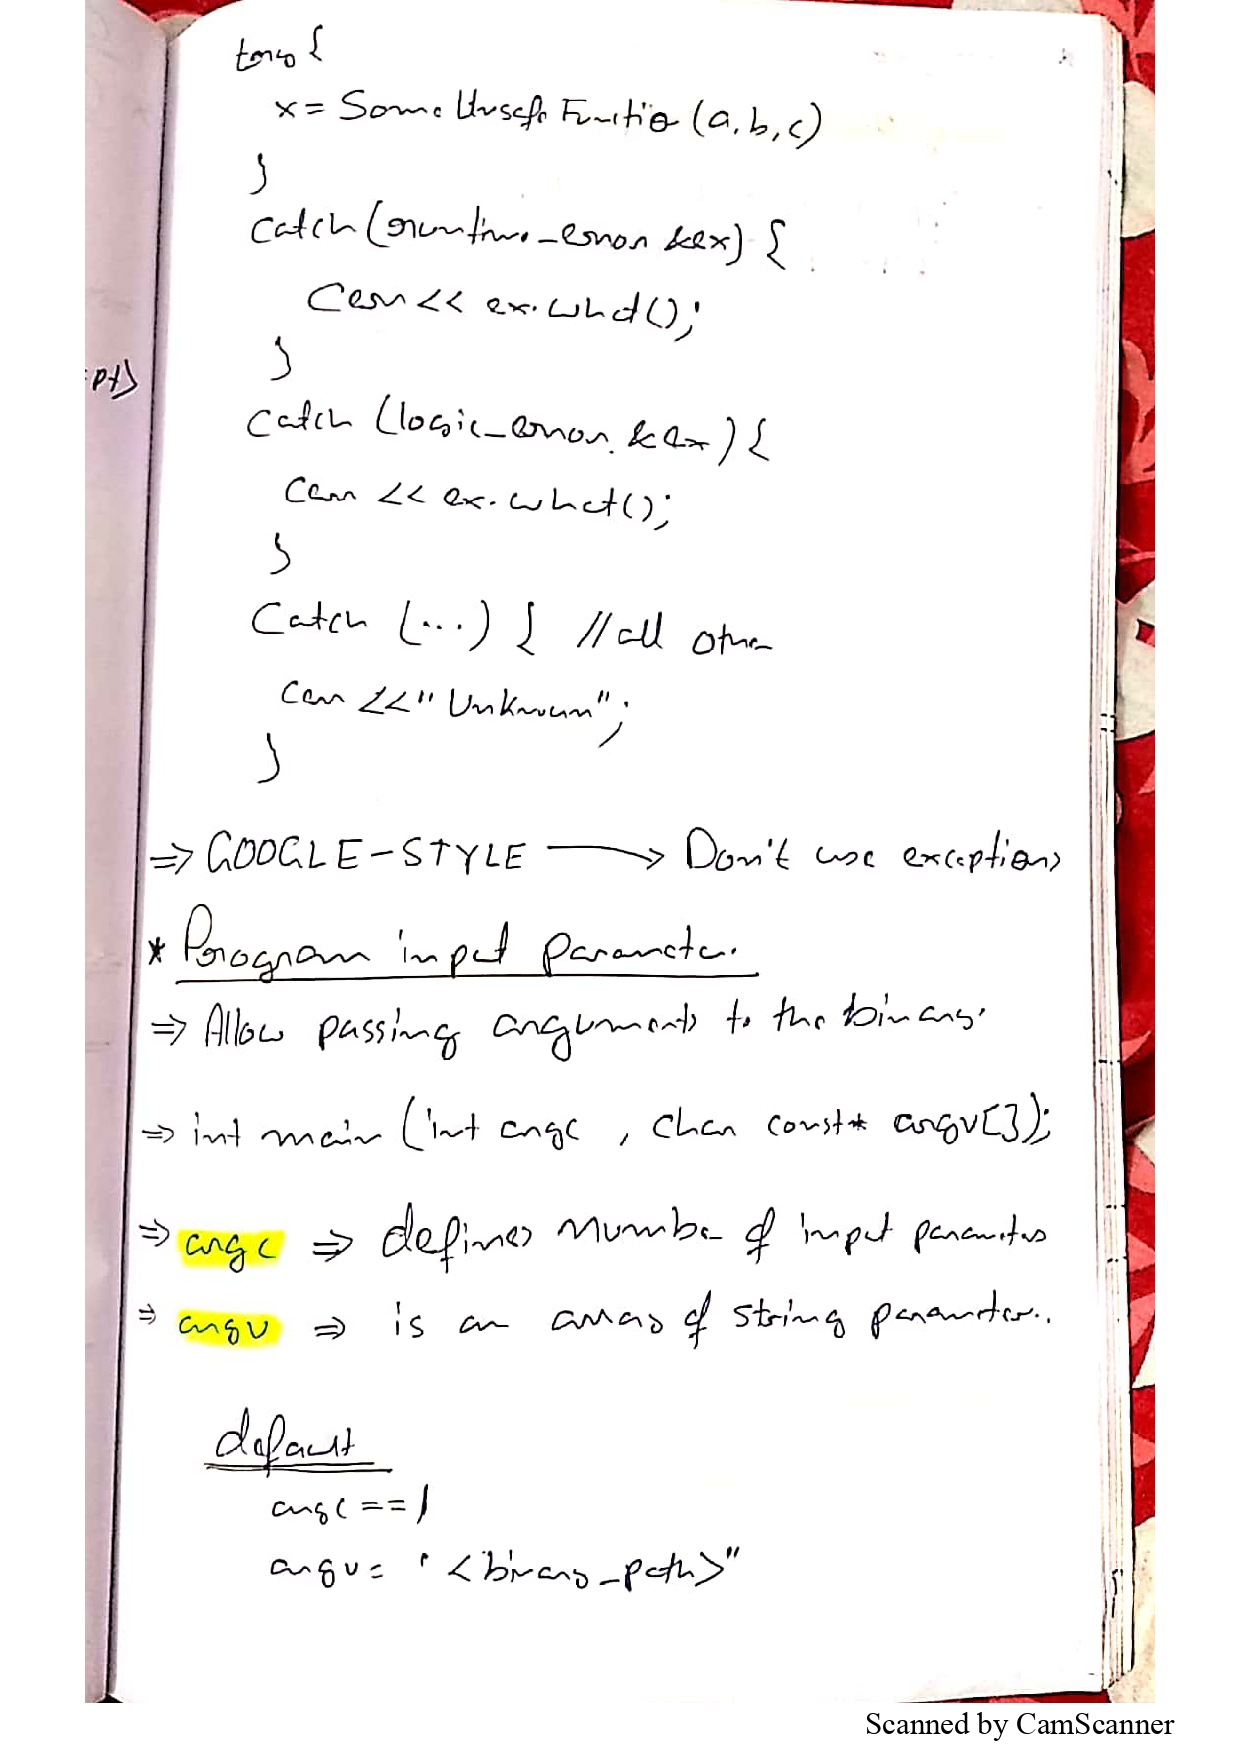 try {
x = SomeUnsafeFunction (a, b, c)
}
catch (runtime_error &ex) {
cerr << ex.what();
}
pt)
catch (logic_error &ex) {
cerr << ex.what();
}
catch (...) { // all other
cerr << "Unknown";
}
⇒ GOOGLE-STYLE ⟶ Don't use exceptions
* Program input parameter.
⇒ Allow passing arguments to the binary.
⇒ int main (int argc , char const* argv[]);
⇒ argc ⇒ defines number of input parameters
⇒ argv ⇒ is an array of string parameter..
default
argc == 1
argv = "<binary_path>"
Scanned by CamScanner